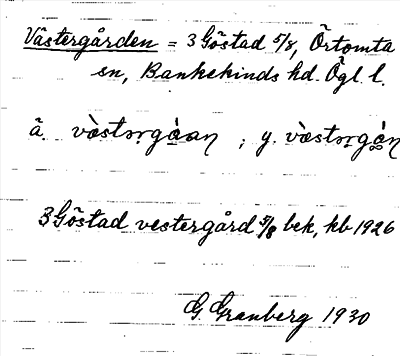 Västergården = 3 Göstad 5/8, Örtomta
sn, Bankekinds hd. Ögl. l.
ä. vàstərgàan, y. vàstərgàn
3 Göstad vestergård 5/8 bek, kb 1926
G. Granberg 1930